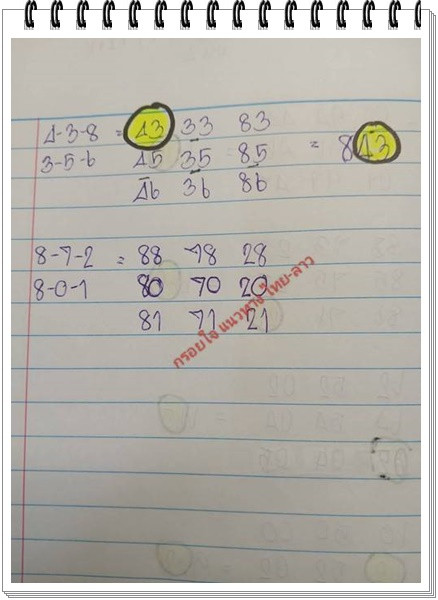 4-3-8 = 43 33 83
3-5-6 45 35 85 = 843
46 36 86
8-7-2 = 88 78 28
8-0-1 80 70 20
81 71 21
กรอบใจ แนวทาง ไทย-ลาว